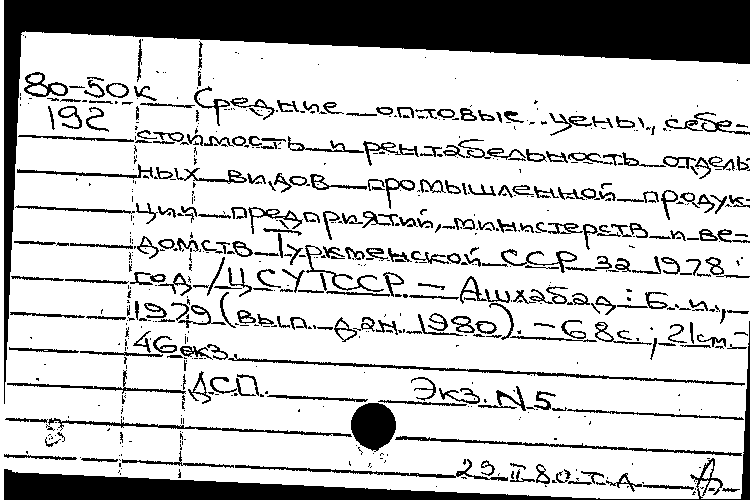 80-50к Средние оптовые цены, себе-
192
стоимость и рентабельность отдель
ных видов промышленной продук-
ции предприятий, министерств и ве-
домств Туркменской ССР за 1978
год / ЦСУ ТССР — Ашхабад: Б.и.,
1979 (вып. дан. 1980). - 68с.; 21см.-
46экз.
ДСП. Экз. N5
29.II 80.